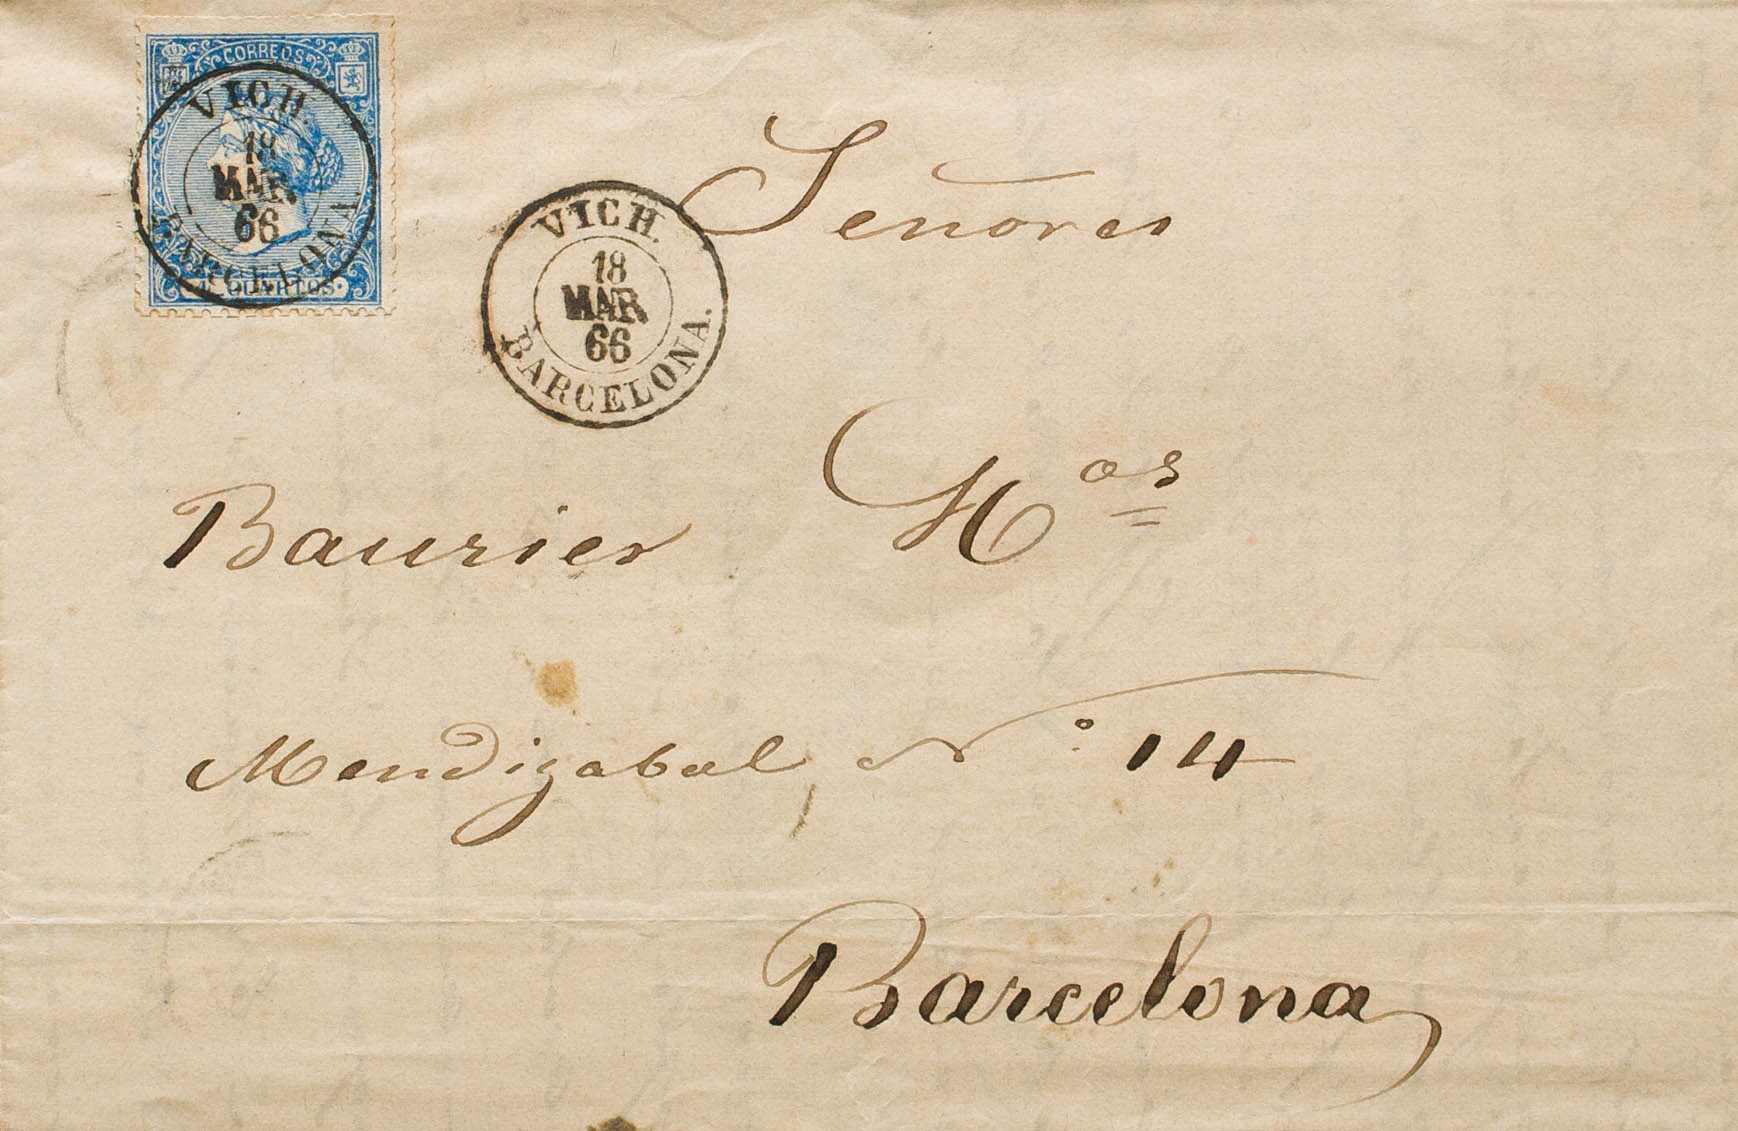 CORREOS
VICH.
18
MAR
66
BARCELONA.
4 CUARTOS
VICH.
18
MAR
66
BARCELONA.
Señores
Baurier H.os
Mendizabal N.º 14
Barcelona